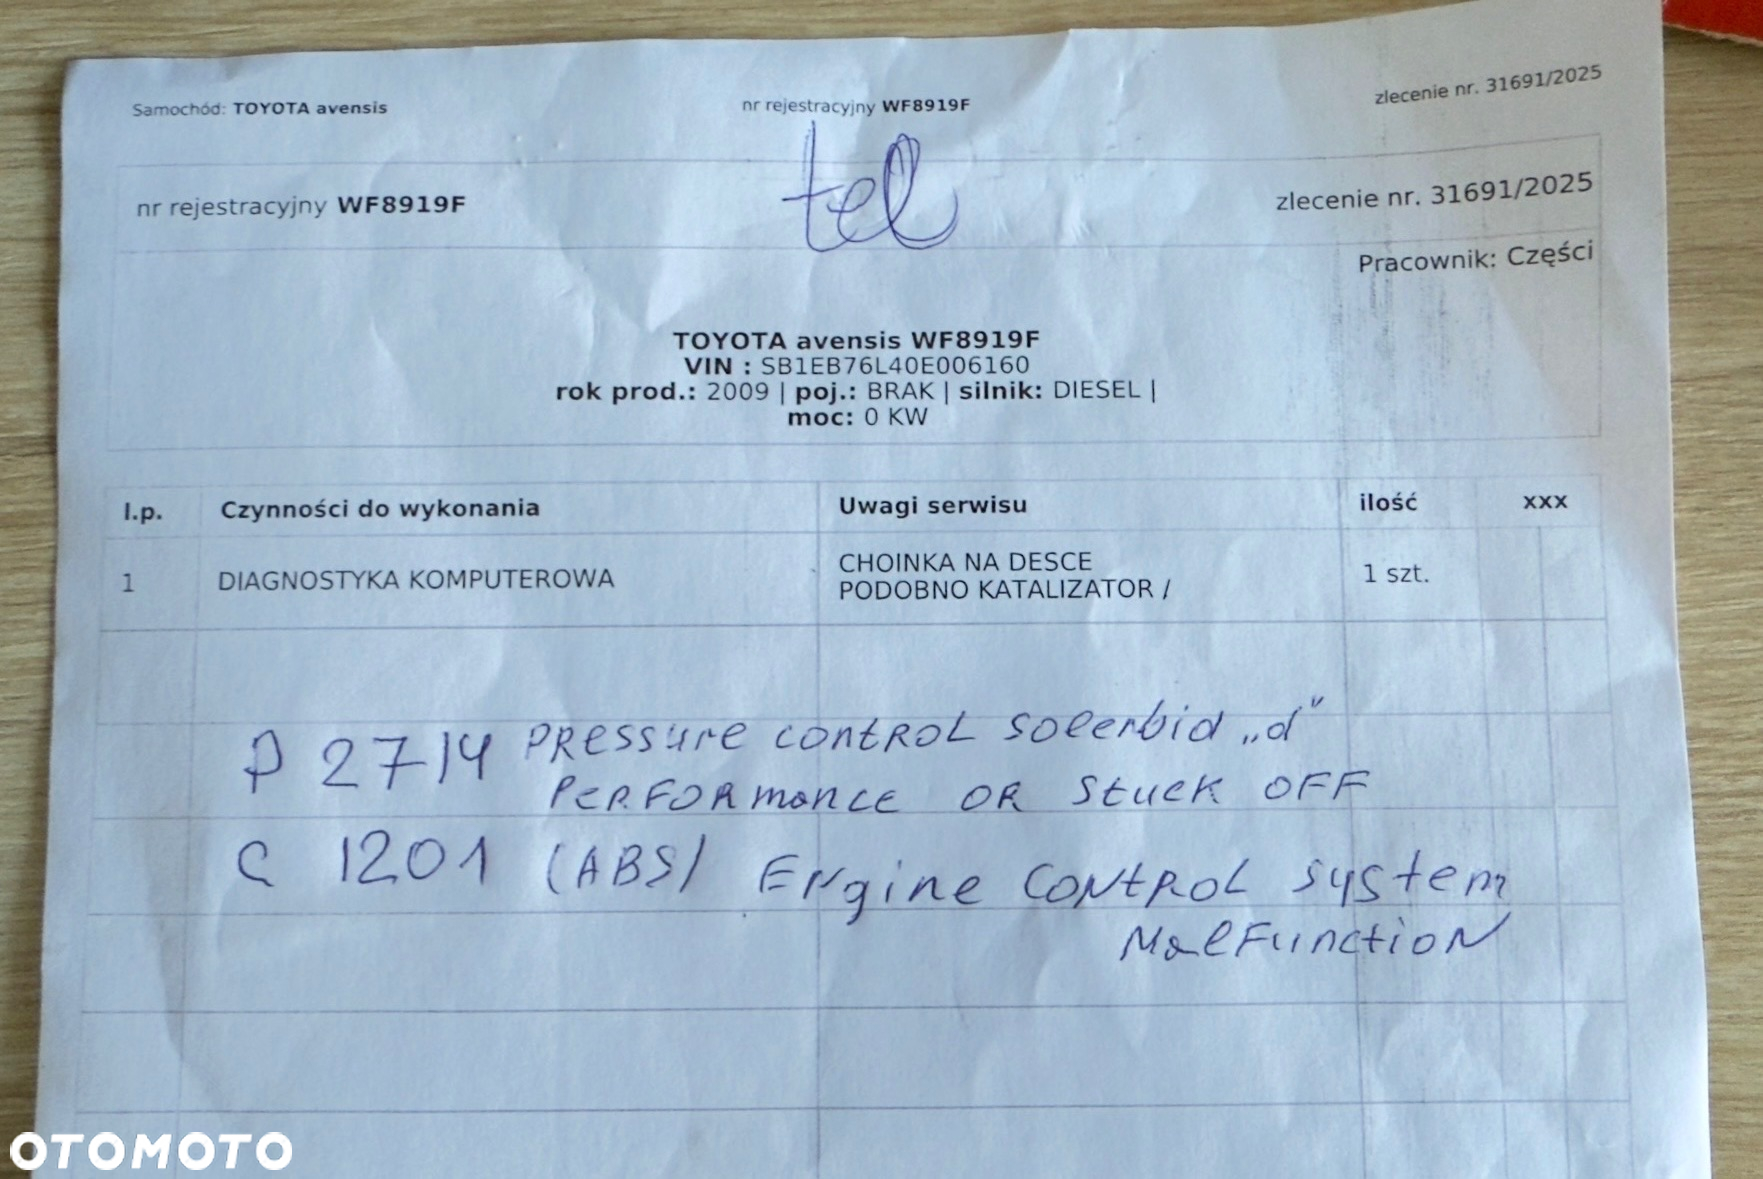 Samochód: TOYOTA avensis nr rejestracyjny WF8919F zlecenie nr. 31691/2025
tel
nr rejestracyjny WF8919F zlecenie nr. 31691/2025
Pracownik: Części
TOYOTA avensis WF8919F
VIN : SB1EB76L40E006160
rok prod.: 2009 | poj.: BRAK | silnik: DIESEL |
moc: 0 KW
l.p. Czynności do wykonania Uwagi serwisu ilość xxx
1 DIAGNOSTYKA KOMPUTEROWA CHOINKA NA DESCE 1 szt.
PODOBNO KATALIZATOR /
P 2714 PRessure control Solenoid „d"
PERFORmance OR Stuck OFF
C 1201 (ABS) Engine CONTROL system
MalFunctioN
OTOMOTO